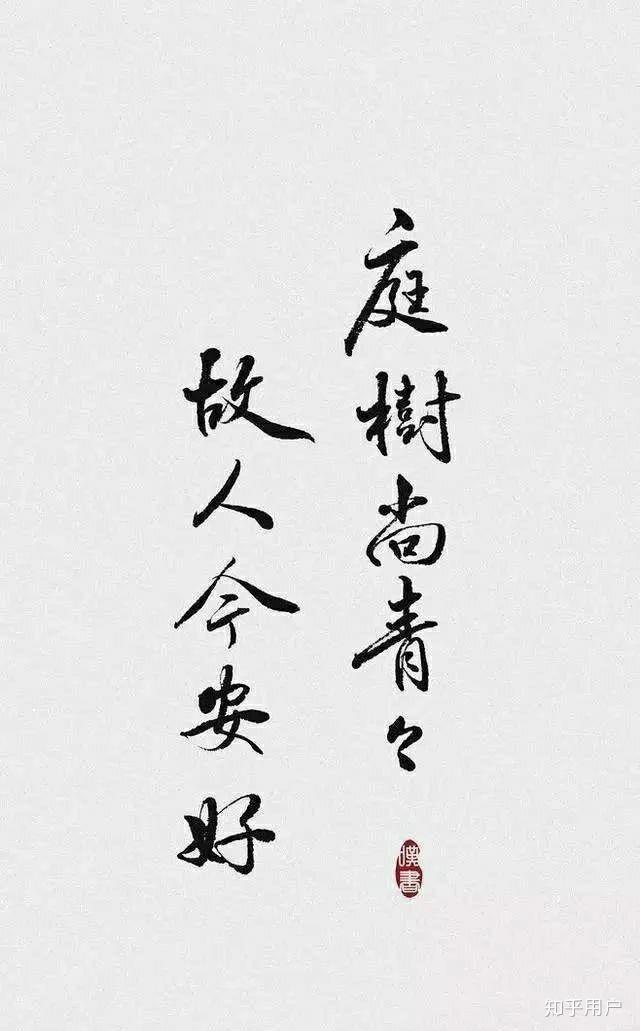 庭樹尚青々
故人今安好
知乎用户